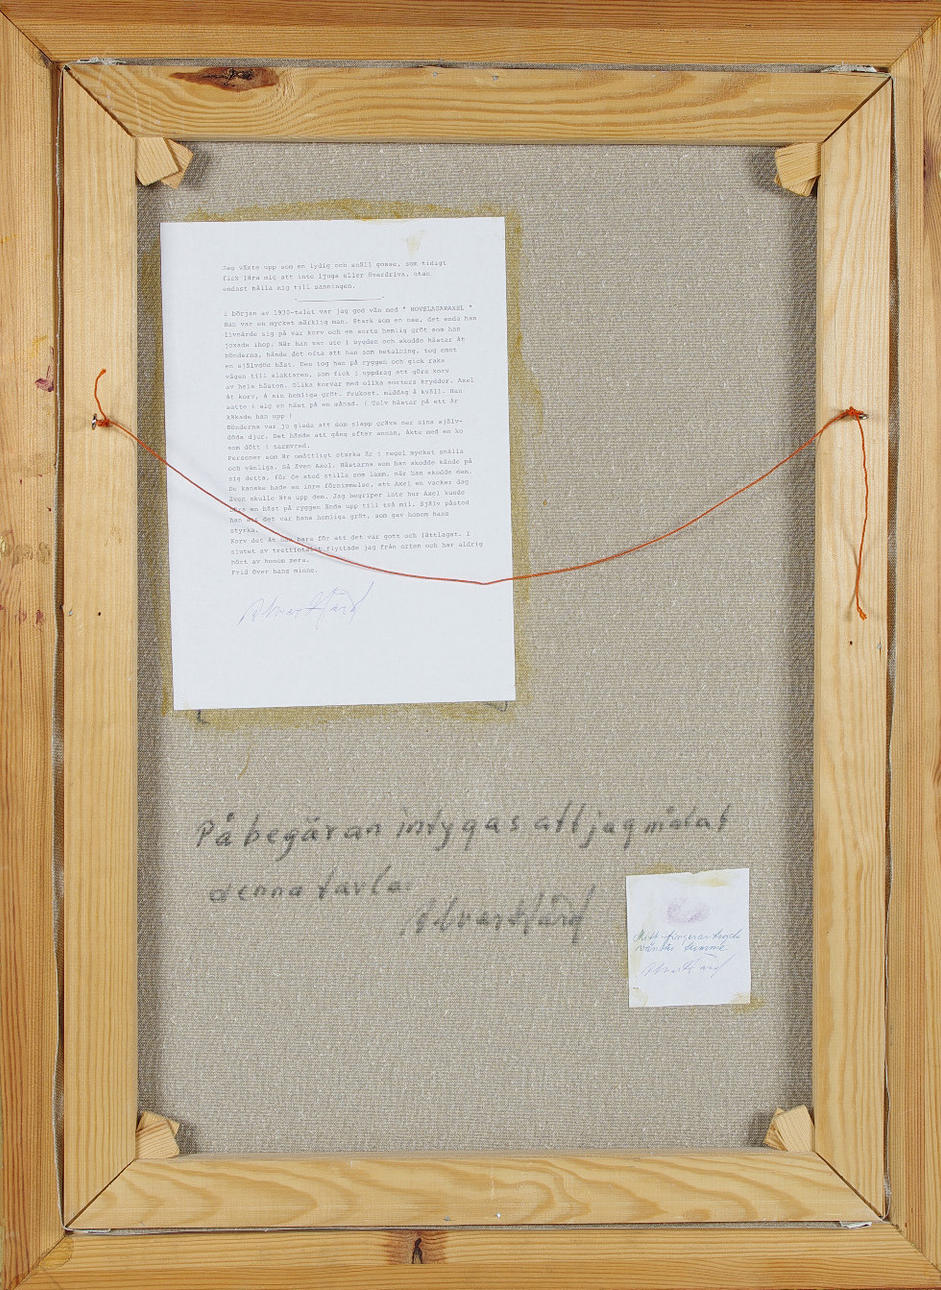 Jag växte upp som en lydig och snäll gosse, som tidigt
fick lära mig att inte ljuga eller överdriva, utan
endast hålla mig till sanningen.
I början av 1930-talet var jag god vän med "
Han var en mycket märklig man. Stark som en oxe, det enda han
livnärde sig på var korv och en sorts hemlig gröt som han
joxade ihop. När han var ute i bygden och skodde hästar åt
bönderna, hände det ofta att han som betalning, tog emot
en självdöd häst. Den tog han på ryggen och gick raka
vägen till slaktaren, som fick i uppdrag att göra korv
av hela hästen. Olika korvar med olika sorters kryddor. Axel
åt korv, å sin hemliga gröt. Frukost, middag å kväll. Han
satte i sig en häst på en månad. ( Tolv hästar på ett år
käkade han upp )
Bönderna var jo glada att dom slapp gräva ner sina själv-
döda djur. Det hände att gång efter annan, åkte med en ko
som dött i tarmvred.
Personer som är omåttligt starka är i regel mycket snälla
och vänliga. Så även Axel. Hästarna som han skodde kände på
sig detta, för de stod stilla som lamm, när han skodde dem.
De kanske hade en inre förnimmelse, att Axel en vacker dag
även skulle äta upp dem. Jag begriper inte hur Axel kunde
bära en häst på ryggen ända upp till två mil. Själv påstod
han att det var hans hemliga gröt, som gav honom hans
styrka.
Korv det åt han bara för att det var gott och lättlagat. I
slutet av trettiotalet flyttade jag från orten och har aldrig
hört av honom mera.
Frid över hans minne.
Alvar Hård
På begäran intygas att jag målat
denna tavla.
Alvar Hård
Mitt fingeravtryck
vänster tumme
Alvar Hård